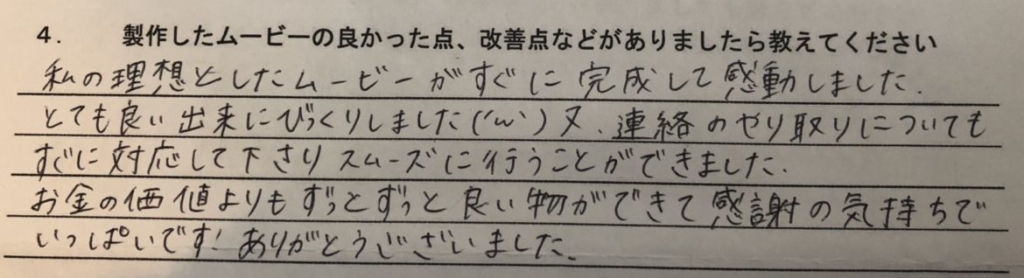 4. 製作したムービーの良かった点、改善点などがありましたら教えてください
私の理想としたムービーがすぐに完成して感動しました.
とても良い出来にびっくりしました('ω') 又、連絡のやり取りについても
すぐに対応して下さりスムーズに行うことができました.
お金の価値よりもずっとずっと良い物ができて感謝の気持ちで
いっぱいです! ありがとうございました.